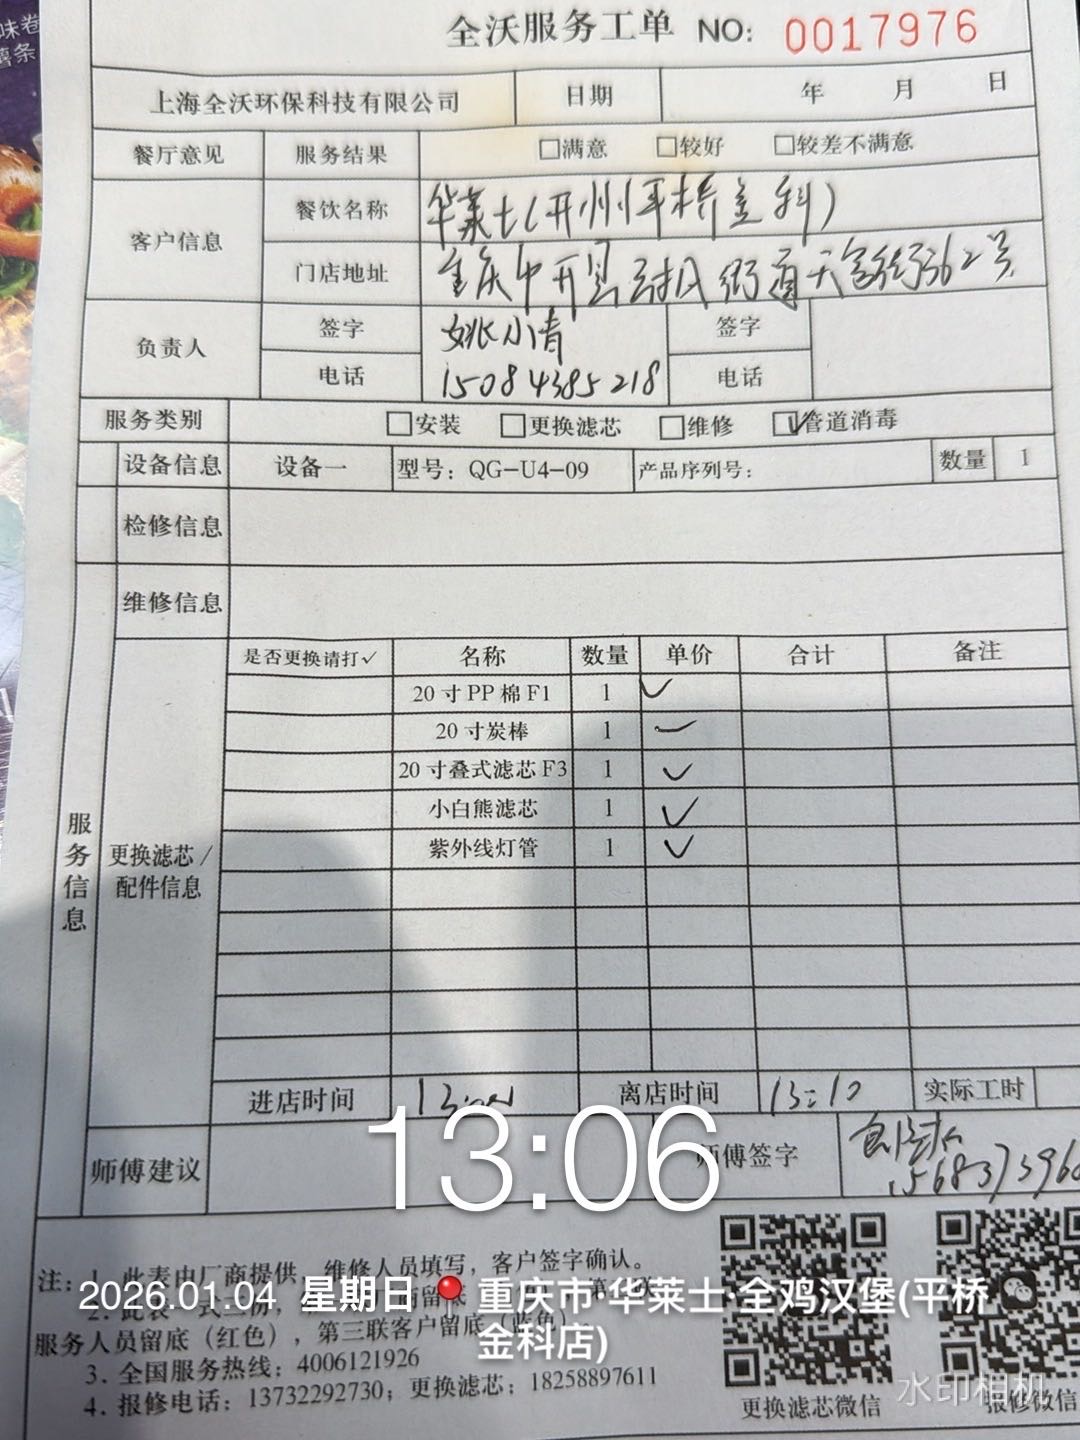 味卷
薯条
全沃服务工单 NO: 0017976
上海全沃环保科技有限公司 日期 年 月 日
餐厅意见 服务结果 □满意 □较好 □较差不满意
客户信息 餐饮名称 华莱士(开州平桥金科)
门店地址 重庆中开县 街道天富街362号
负责人 签字 姚小青 签字
电话 15084385218 电话
服务类别 □安装 □更换滤芯 □维修 ☑管道消毒
设备信息 设备一 型号: QG-U4-09 产品序列号: 数量 1
检修信息
维修信息
服务信息 更换滤芯/配件信息
是否更换请打✓ 名称 数量 单价 合计 备注
20寸PP棉F1 1 ✓
20寸炭棒 1 ✓
20寸叠式滤芯F3 1 ✓
小白熊滤芯 1 ✓
紫外线灯管 1 ✓
进店时间 离店时间 13:10 实际工时
师傅建议 师傅签字
13:06
注: 1. 此表由厂商提供,维修人员填写,客户签字确认。
2026.01.04 星期日 重庆市·华莱士·全鸡汉堡(平桥金科店)
服务人员留底(红色),第三联客户留底(蓝色)
3. 全国服务热线: 4006121926
4. 报修电话: 13732292730; 更换滤芯: 18258897611
更换滤芯微信 报修微信
水印相机